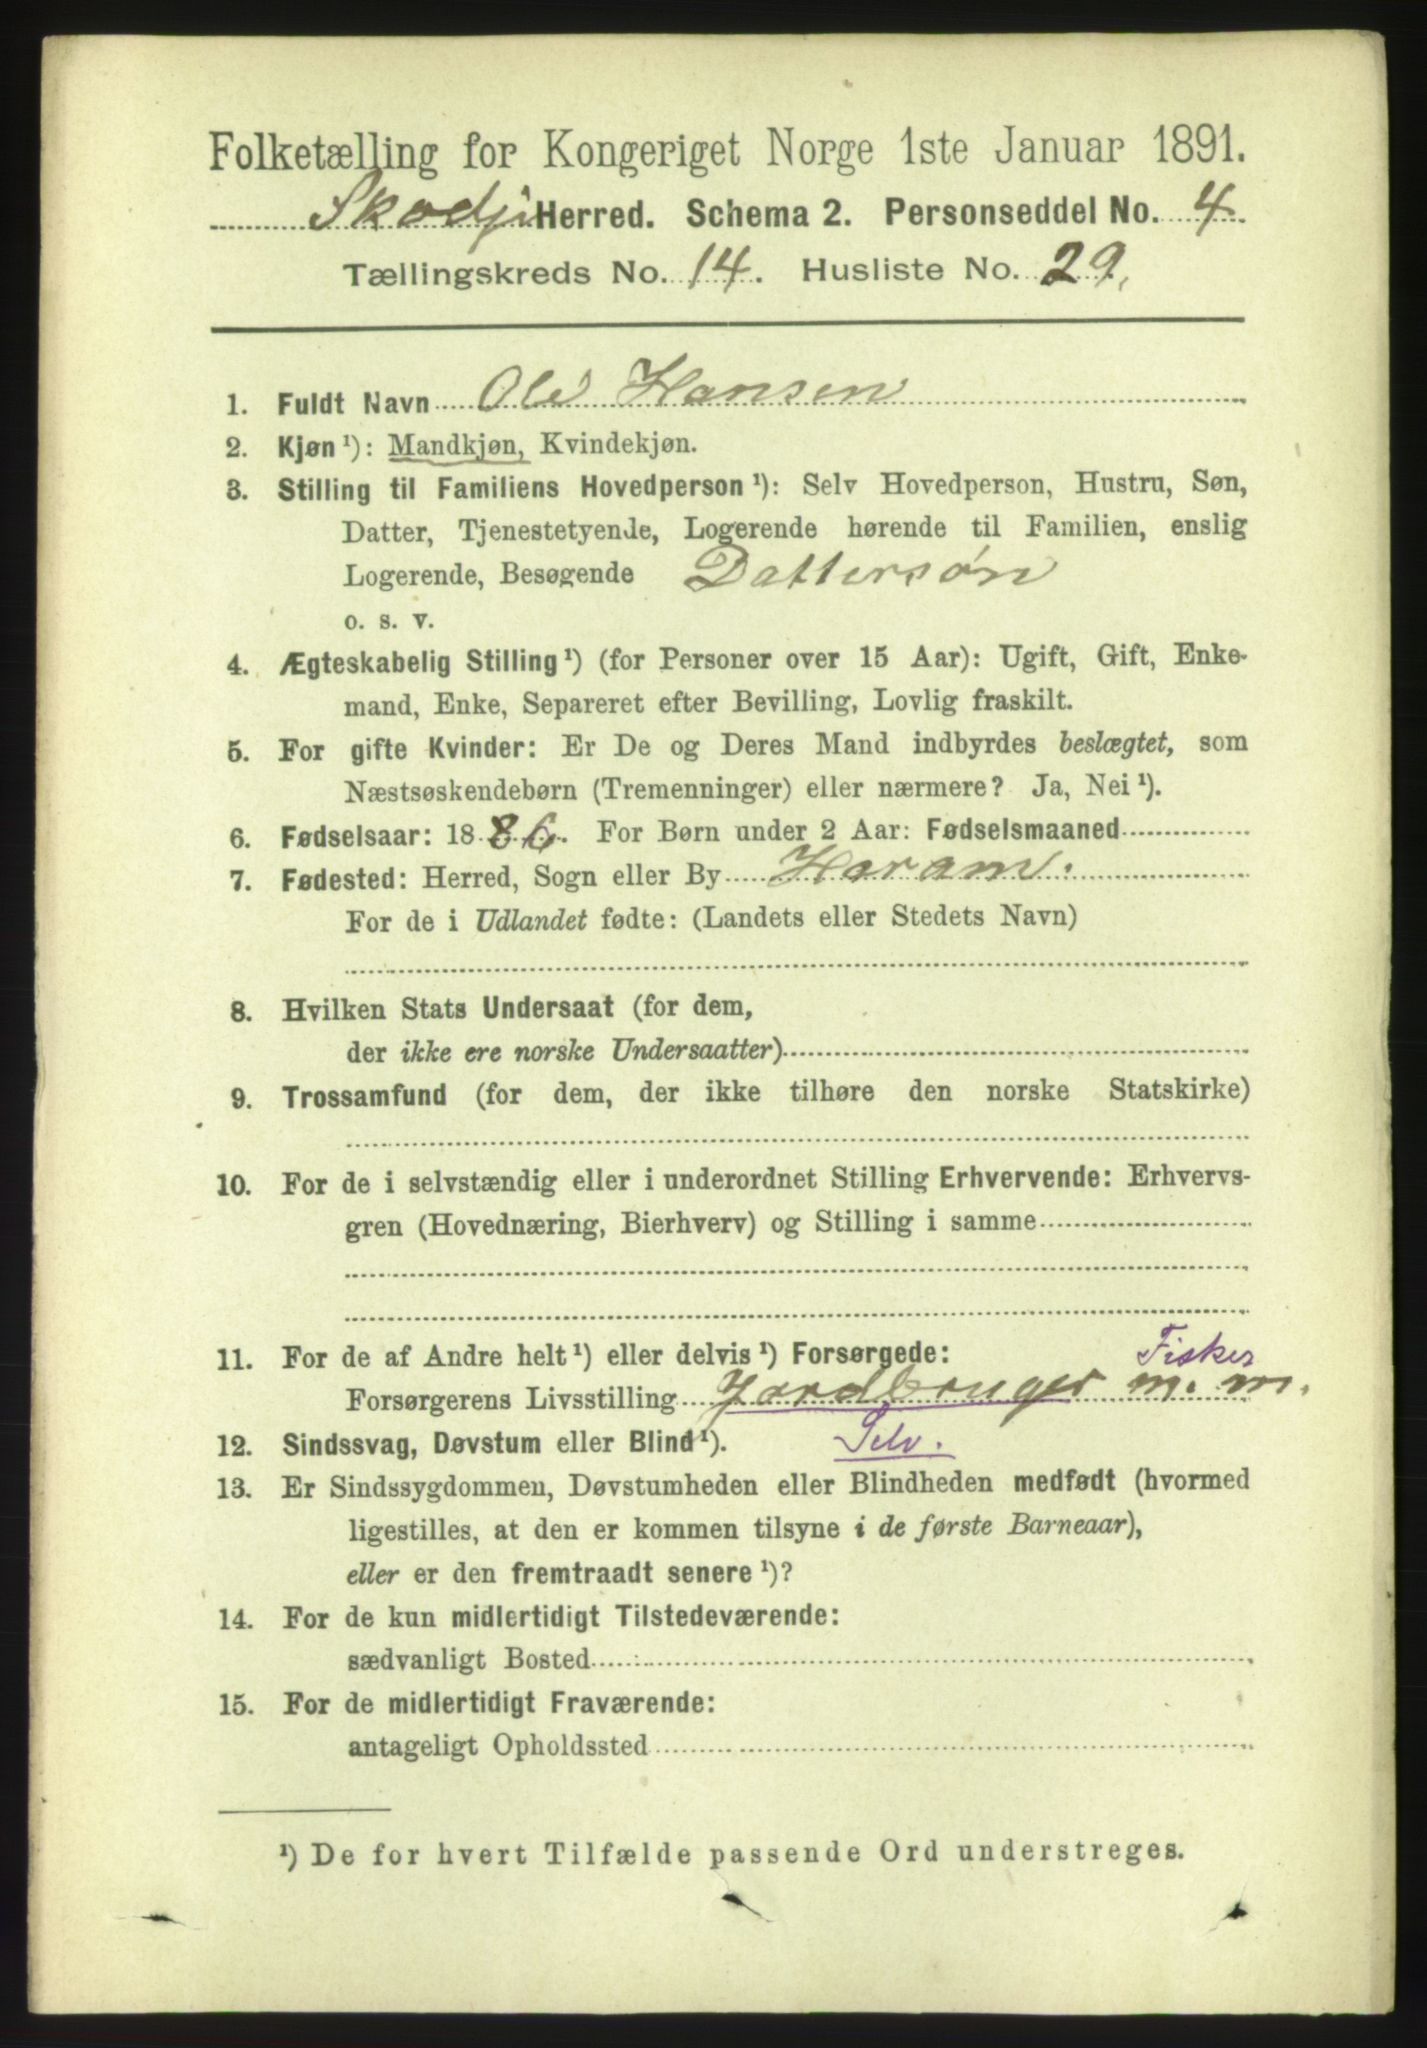 Folketælling for Kongeriget Norge 1ste Januar 1891.
Skodje Herred. Schema 2. Personseddel No. 4
Tællingskreds No. 14. Husliste No. 29.
1. Fuldt Navn Ole Hansen
2. Kjøn ¹): Mandkjøn, Kvindekjøn.
3. Stilling til Familiens Hovedperson ¹): Selv Hovedperson, Hustru, Søn,
Datter, Tjenestetyende, Logerende hørende til Familien, enslig
Logerende, Besøgende Dattersøn
o. s. v.
4. Ægteskabelig Stilling ¹) (for Personer over 15 Aar): Ugift, Gift, Enke-
mand, Enke, Separeret efter Bevilling, Lovlig fraskilt.
5. For gifte Kvinder: Er De og Deres Mand indbyrdes beslægtet, som
Næstsøskendebørn (Tremenninger) eller nærmere? Ja, Nei ¹).
6. Fødselsaar: 1886. For Børn under 2 Aar: Fødselsmaaned
7. Fødested: Herred, Sogn eller By Haram.
For de i Udlandet fødte: (Landets eller Stedets Navn)
8. Hvilken Stats Undersaat (for dem,
der ikke ere norske Undersaatter)
9. Trossamfund (for dem, der ikke tilhøre den norske Statskirke)
10. For de i selvstændig eller i underordnet Stilling Erhvervende: Erhvervs-
gren (Hovednæring, Bierhverv) og Stilling i samme
11. For de af Andre helt ¹) eller delvis ¹) Forsørgede: Fisker
Forsørgerens Livsstilling Jordbruger m. m.
12. Sindssvag, Døvstum eller Blind ¹). Selv.
13. Er Sindssygdommen, Døvstumheden eller Blindheden medfødt (hvormed
ligestilles, at den er kommen tilsyne i de første Barneaar),
eller er den fremtraadt senere ¹)?
14. For de kun midlertidigt Tilstedeværende:
sædvanligt Bosted
15. For de midlertidigt Fraværende:
antageligt Opholdssted
¹) De for hvert Tilfælde passende Ord understreges.